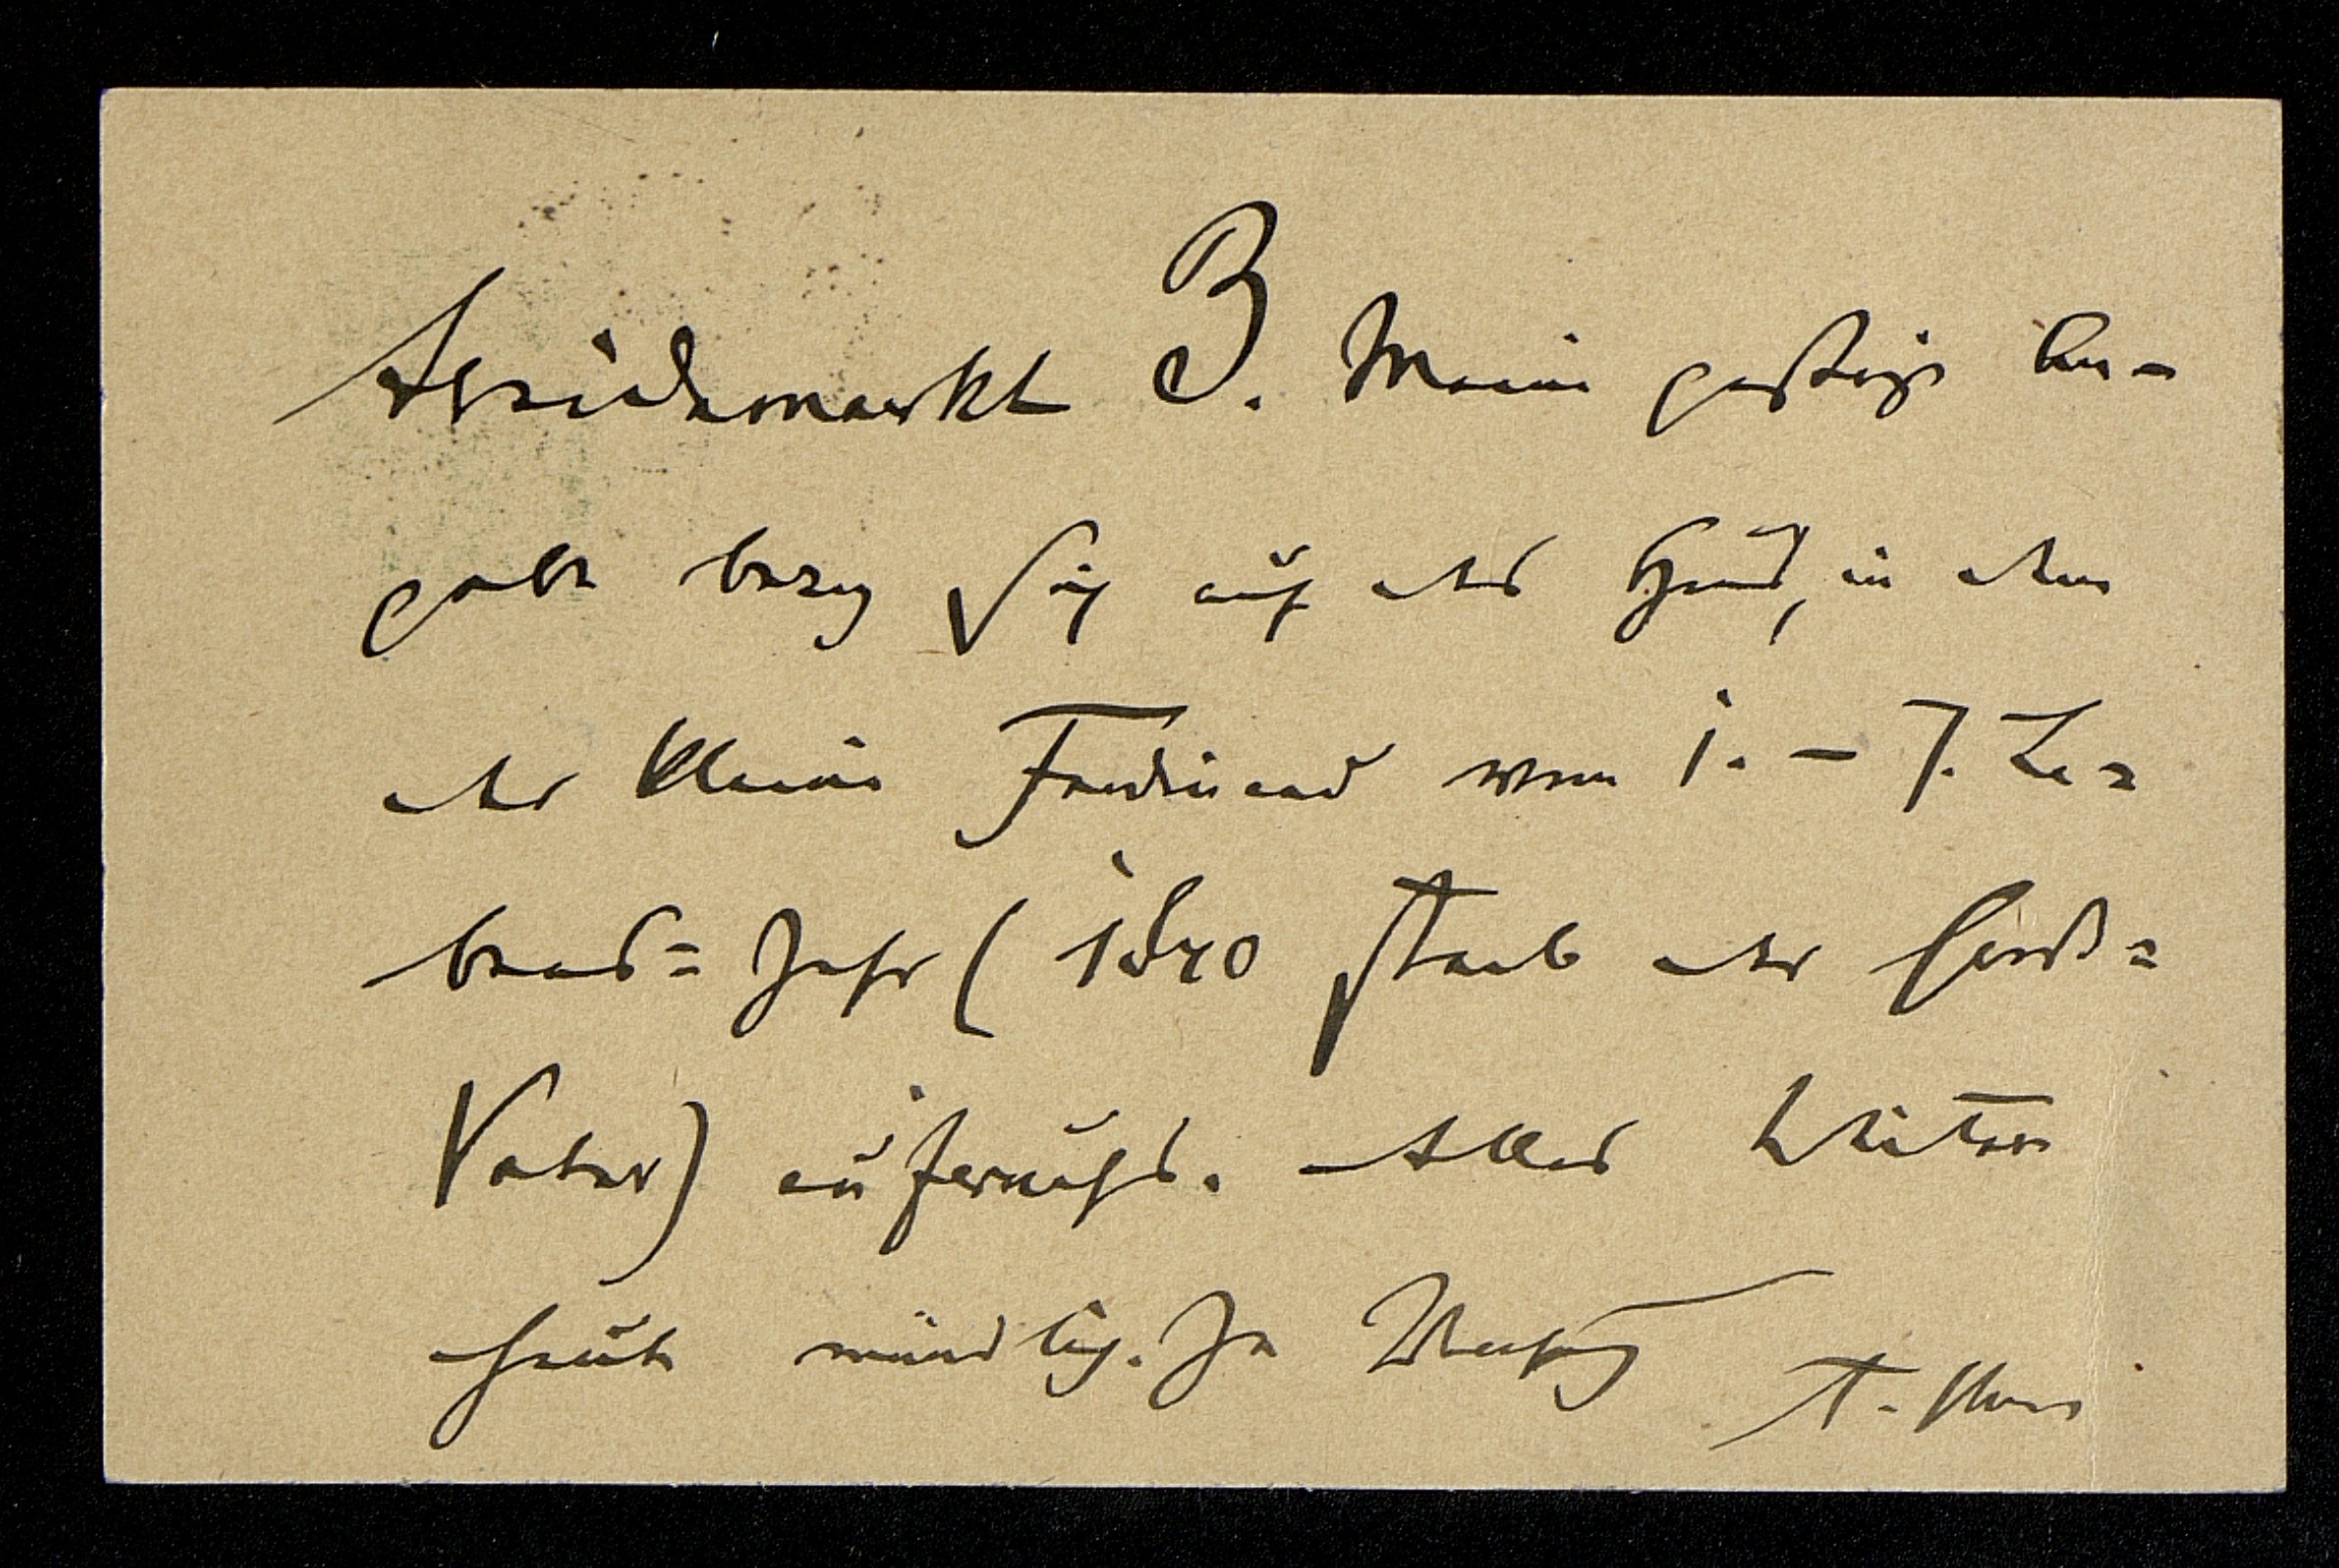 Getreidemarkt 3. Meine gestrige An-
gabe bezog sich auf das Haus, in dem
der kleine Ferdinand vom 1. – 7. Le=
bens= Jahr (1840 starb der Groß=
Vater) aufwuchs. Alles Weitere
heute mündlich. Ihr